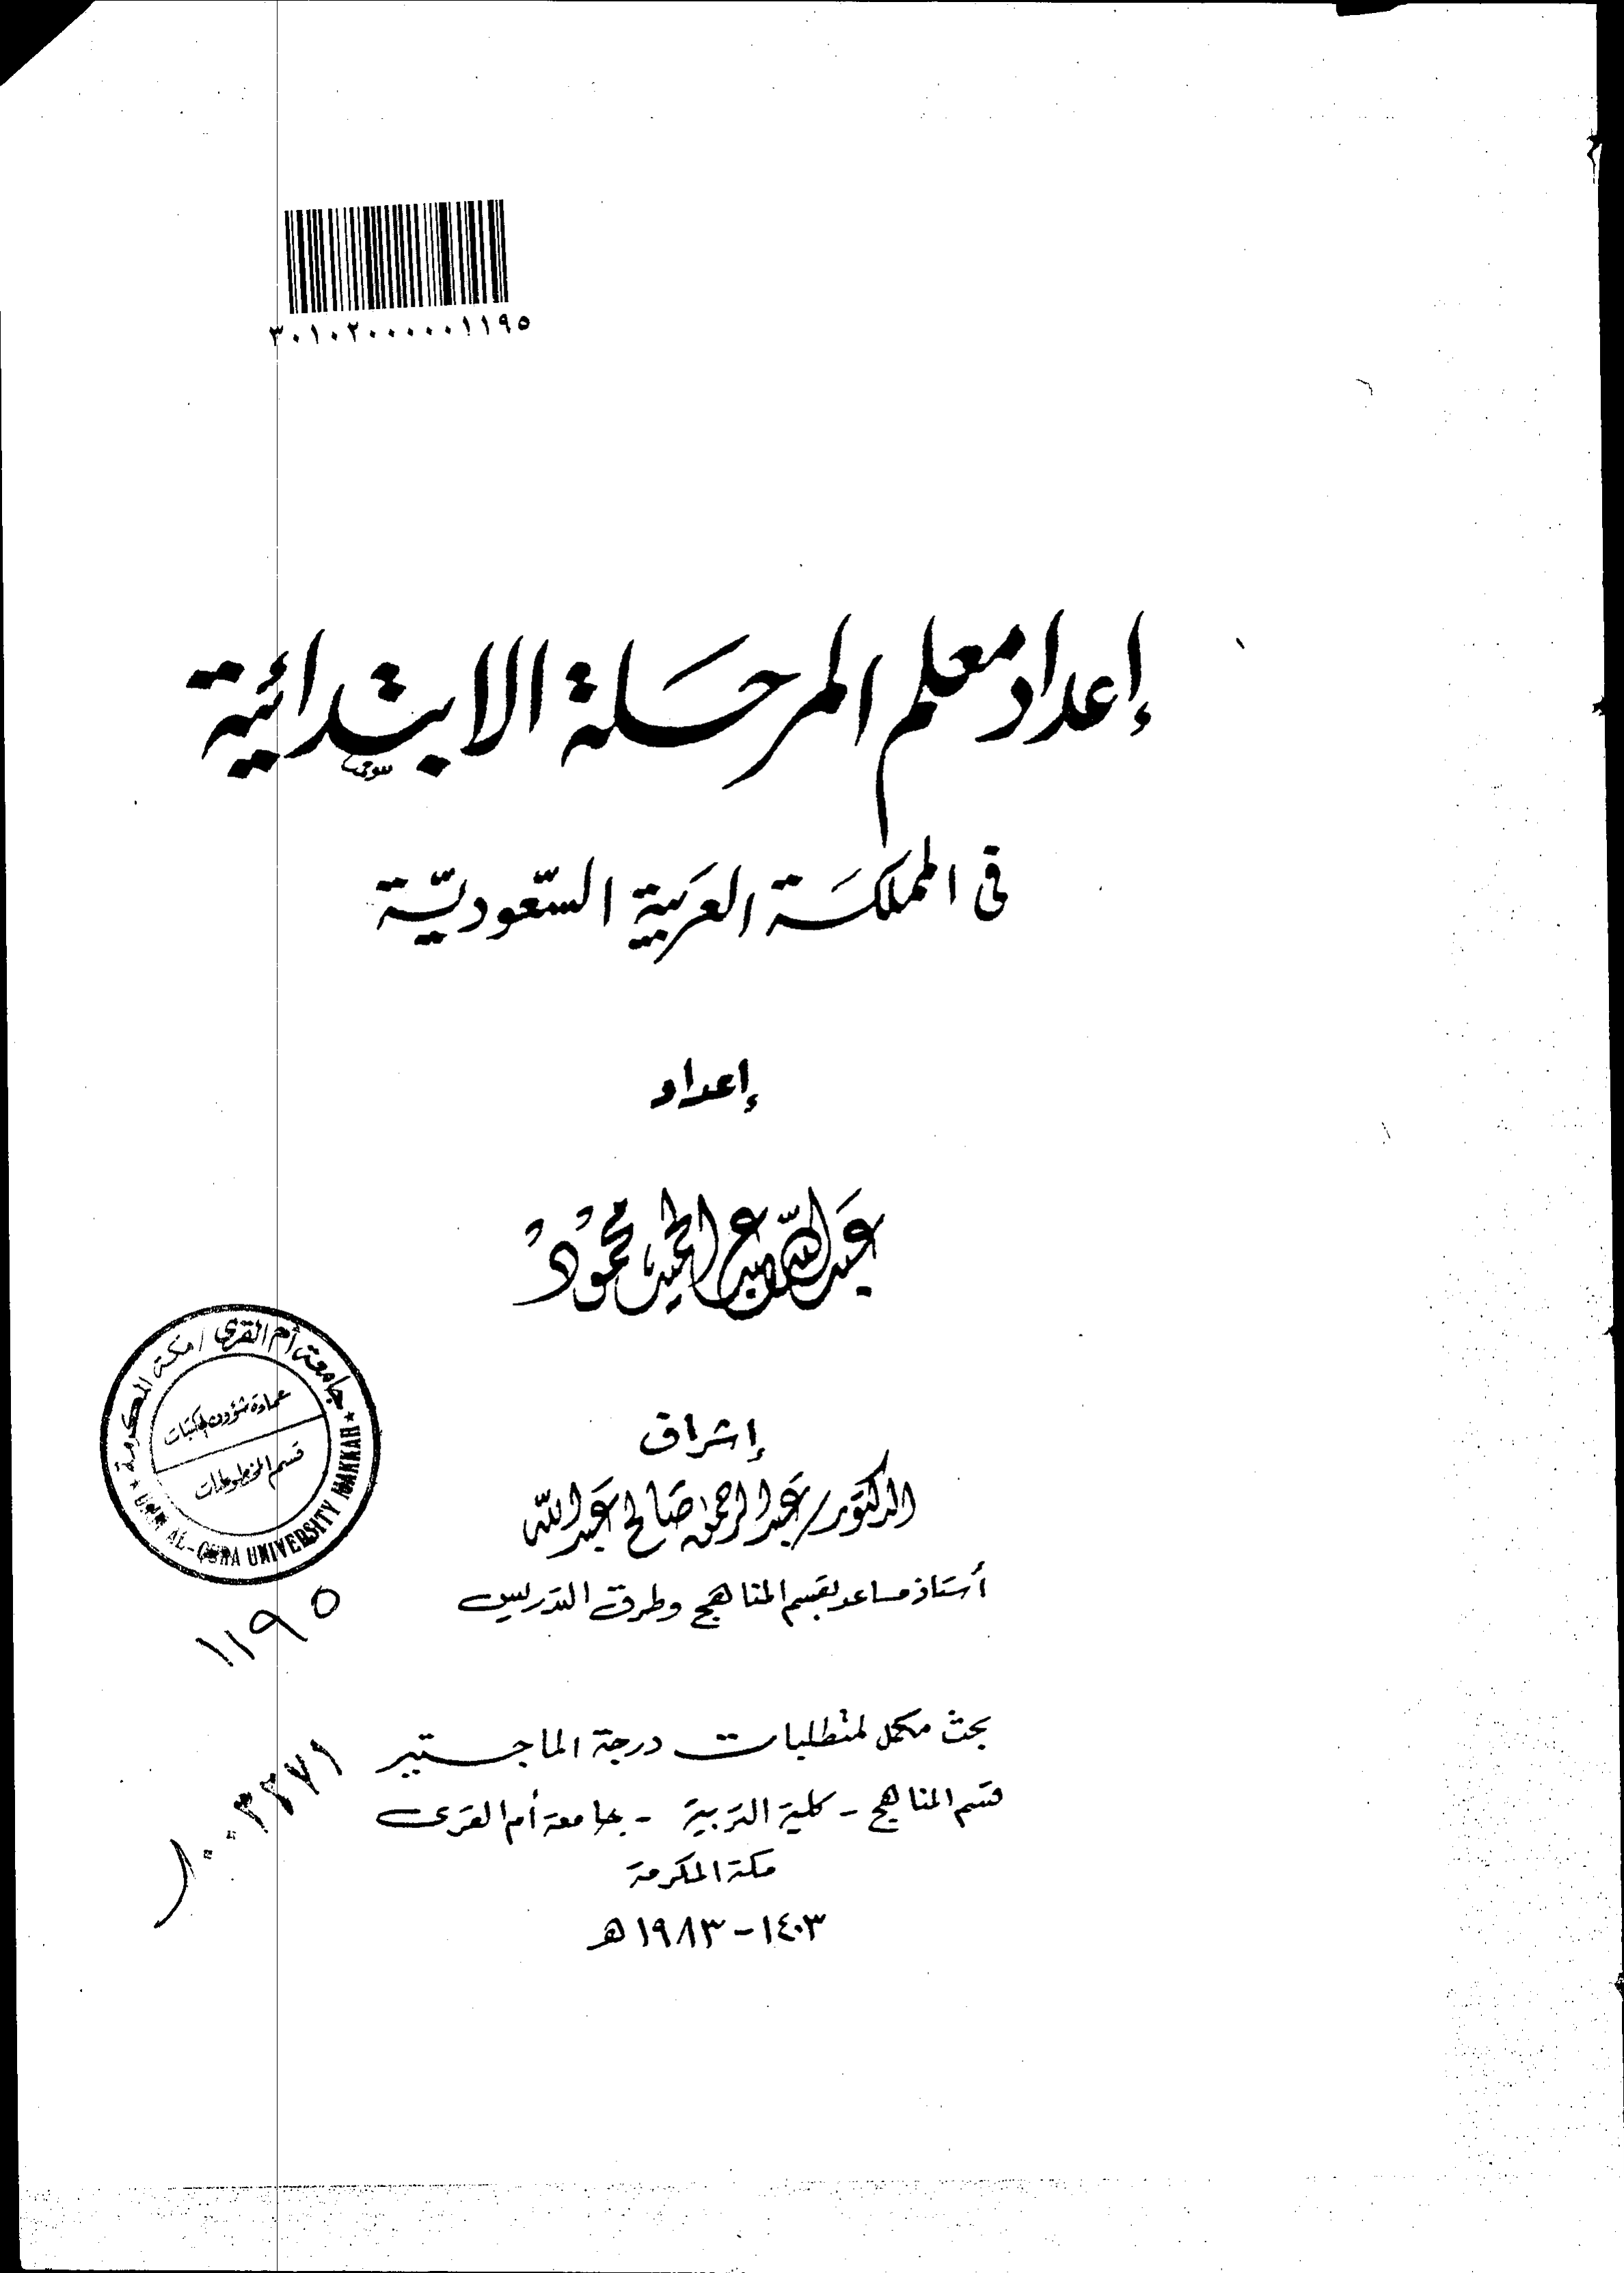 ٣٠١٠٢٠٠٠٠٠١١٩٥
إعداد معلم المرحلة الابتدائية
فى المملكة العربية السعودية
إعداد
عبد الله عبد الحميد محمود
جامعة أم القرى / مكة المكرمة
عمادة شؤون المكتبات
قسم المخطوطات
UMM AL-QURA UNIVERSITY MAKKAH
إشراف
الدكتور / عبد الرحمن صالح عبد الله
أستاذ مساعد بقسم المناهج وطرق التدريس
١١٩٥
بحث مكمل لمتطلبات درجة الماجستير
قسم المناهج - كلية التربية - جامعة أم القرى
مكة المكرمة
١٤٠٣ - ١٩٨٣ هـ